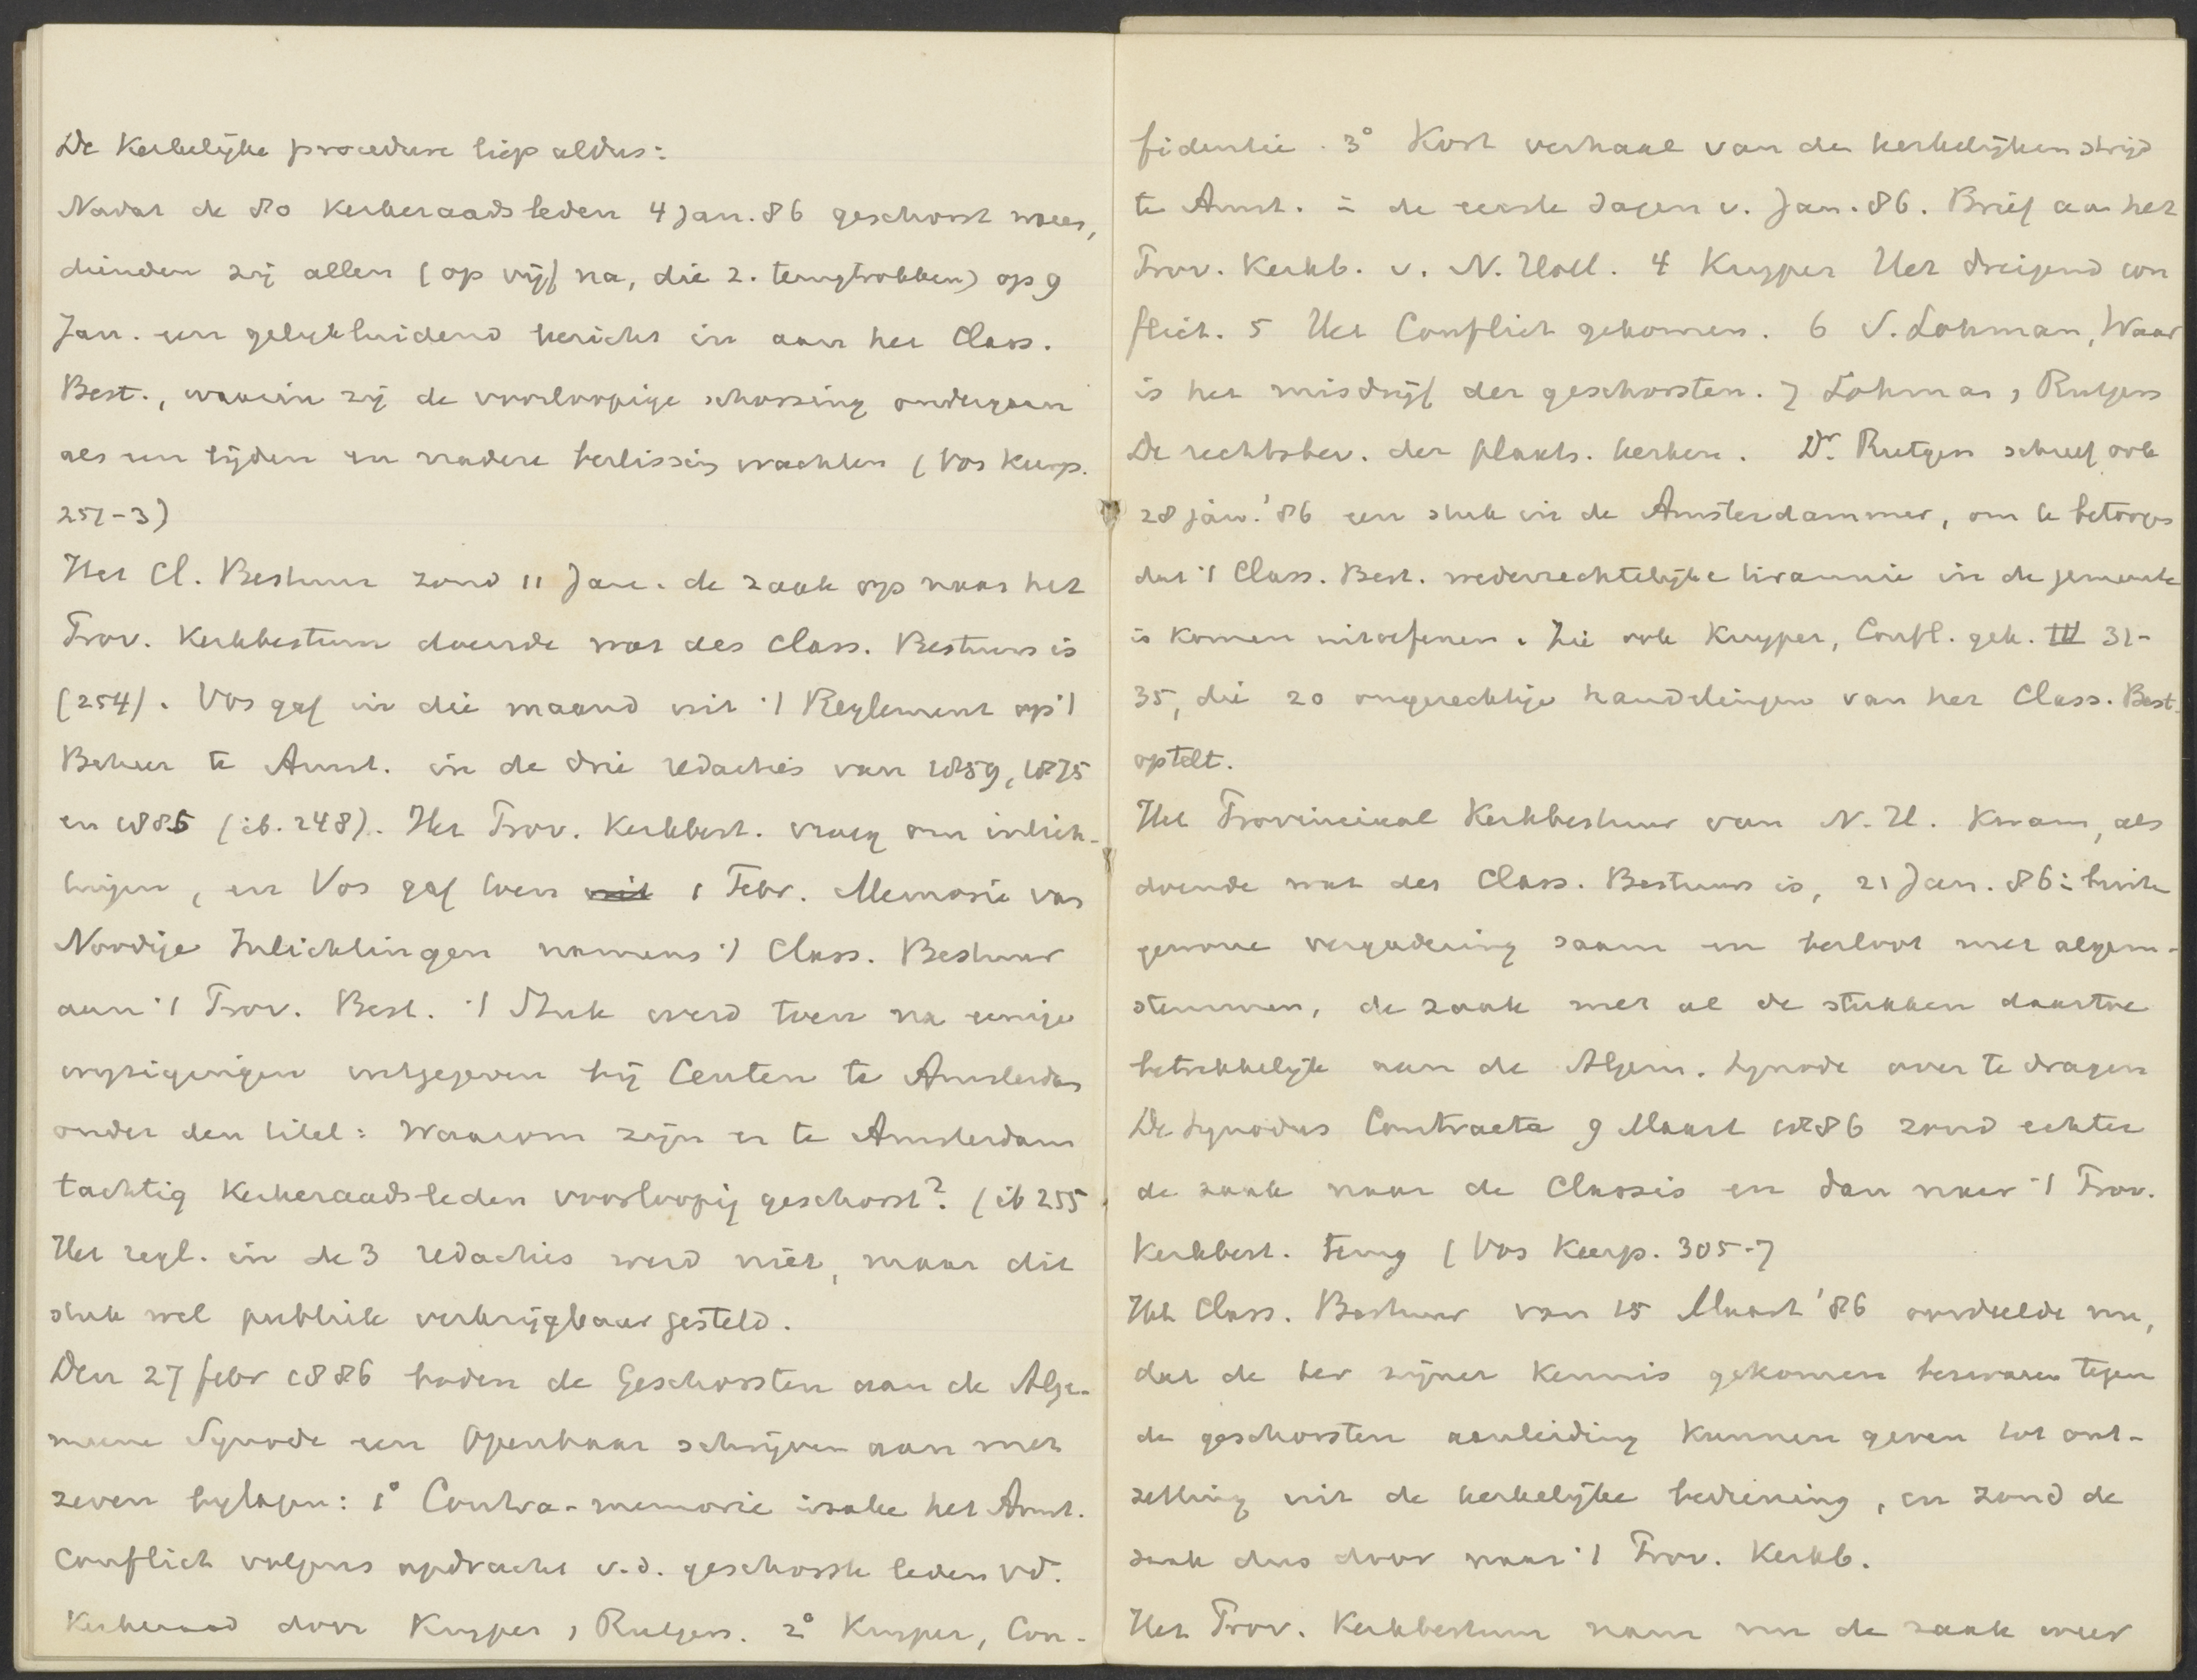 De Kerkelijke procedure liep aldus:
Nadat de 80 Kerkeraadsleden 4 Jan. 86 geschorst waren,
dienden zij allen (op vijf na, die z. terugtrokken) op 9
Jan. een gelijkluidend bericht in aan het Class.
Best., waarin zij de voorloopige schorsing ondergaan
als een lijden en nadere beslissing wachten (Vos Keerp.
251-3)
Het Cl. Bestuur zond 11 Jan. de zaak op naar het
Prov. Kerkbestuur doende wat des Class. Bestuurs is
(254). Vos gaf in die maand uit 't Reglement op 't
Beheer te Amst. in de drie redacties van 1859, 1875
en 1885 (ib. 248). Het Prov. Kerkbest. vroeg om inlich-
tingen, en Vos gaf toen uit 1 Febr. Memorie van
Noodige Inlichtingen namens 't Class. Bestuur
aan 't Prov. Best. 't Stuk werd toen na eenige
wijzigingen uitgegeven bij Centen te Amsterdam
onder den titel: Waarom zijn er te Amsterdam
tachtig Kerkeraadsleden voorloopig geschorst? (ib 255
Het regl. in de 3 redacties werd niet, maar dit
stuk wel publiek verkrijgbaar gesteld.
Den 27 febr 1886 boden de Geschorsten aan de Alge-
meene Synode een Openbaar schrijven aan met
zeven bijlagen: 1° Contra-memorie inzake het Amst.
Conflict volgens opdracht v.d. geschorste leden vd.
Kerkeraad door Kuyper, Rutgers. 2° Kuyper, Con-
fidentie. 3° Kort verhaal van den kerkelijken strijd
te Amst. in de eerste dagen v. Jan. 86. Brief aan het
Prov. Kerkb. v. N. Holl. 4 Kuyper Het dreigend con
flict. 5 Het Conflict gekomen. 6 S. Lohman, Waar
is het misdrijf der geschorsten. 7 Lohman, Rutgers
De rechtsbev. der plaats. kerken. Dr. Rutgers schreef ook
28 jan. '86 een stuk in de Amsterdammer, om te betoogen
dat 't Class. Best. wederrechtelijke tirannie in de gemeente
is komen uitoefenen. Zie ook Kuyper, Confl. gek. III 31-
35, die 20 ongerechtige handelingen van het Class. Best.
optelt.
Het Provinciaal Kerkbestuur van N. H. kwam, als
doende wat des Class. Bestuurs is, 21 Jan. 86 in buiten
gewone vergadering saam en besloot met algem-
stemmen, de zaak met al de stukken daartoe
betrekkelijk aan de Algem. Synode over te dragen
De Synodus Contracta 9 Maart 1886 zond echter
de zaak naar de Classis en dan naar 't Prov.
Kerkbest. terug (Vos Keerp. 305-7
Het Class. Bestuur van 15 Maart '86 oordeelde nu,
dat de ter zijner kennis gekomen bezwaren tegen
de geschorsten aanleiding kunnen geven tot ont-
zetting uit de kerkelijke bediening, en zond de
zaak dus door naar 't Prov. Kerkb.
Het Prov. Kerkbestuur nam nu de zaak weer